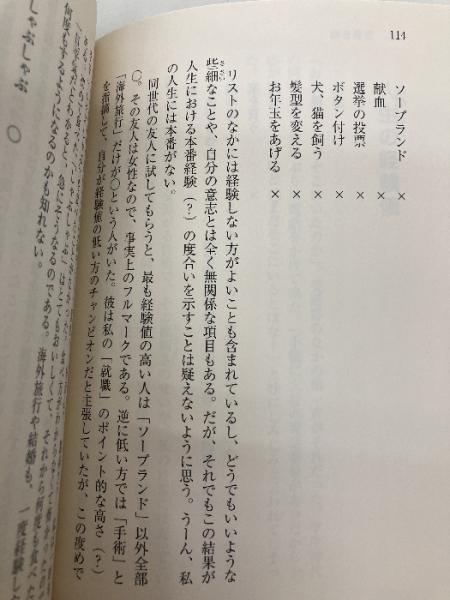 114
ソープランド ×
献血 ×
選挙の投票 ×
ボタン付け ×
犬、猫を飼う ×
髪型を変える ×
お年玉をあげる ×
リストのなかには経験しない方がよいことも含まれているし、どうでもいいような
些細なことや、自分の意志とは全く無関係な項目もある。だが、それでもこの結果が
人生における本番経験（？）の度合いを示すことは疑えないように思う。うーん、私
の人生には本番がない。
同世代の友人に試してもらうと、最も経験値の高い人は「ソープランド」以外全部
〇。その友人は女性なので、事実上のフルマークである。逆に低い方では「手術」と
「海外旅行」だけが〇という人がいた。彼は私の「就職」のポイント的な高さ（？）
を指摘して、自分が経験値の低い方のチャンピオンだと主張していたが、この度めで
しゃぶしゃぶ 〇
急にそうなるのである。海外旅行や結婚も、一度経験した
何度もするようになるのかも知れない。